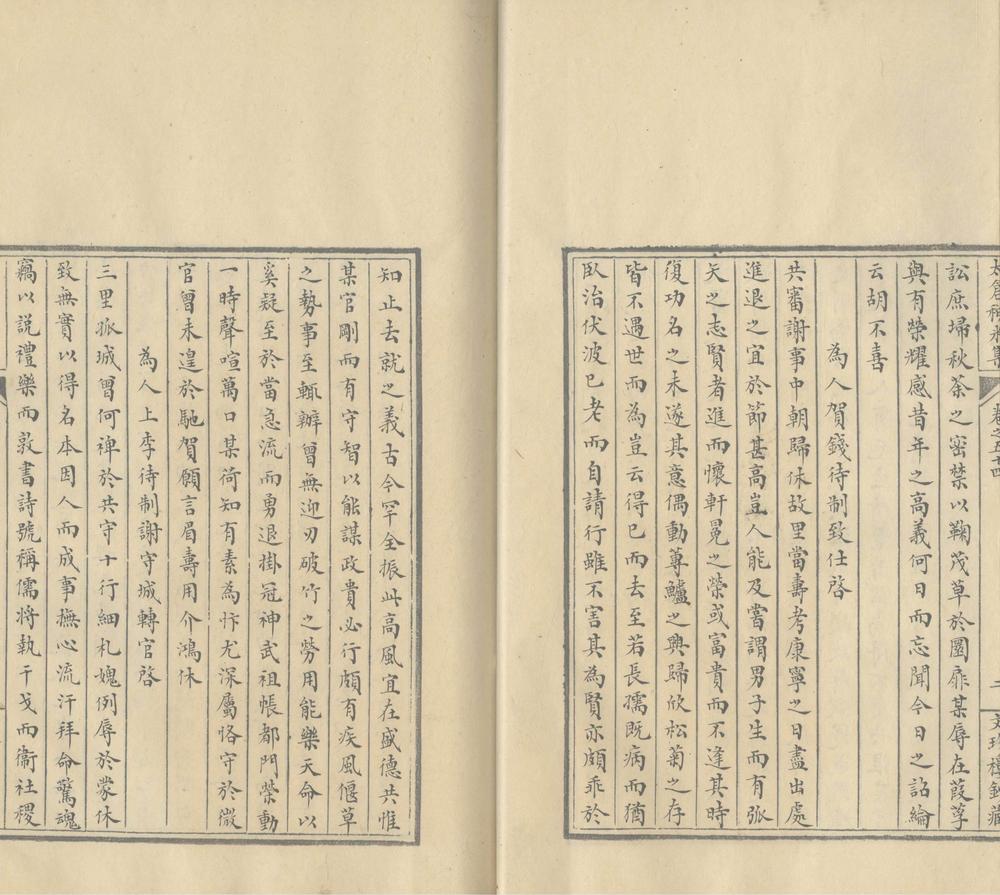 太倉稊米集 卷之五十四
訟庶埽秋荼之密禁以鞠茂草於圜扉某辱在葭莩
與有榮耀感昔年之高義何日而忘聞今日之詔綸
云胡不喜
為人賀錢待制致仕啓
共審謝事中朝歸休故里當壽考康寧之日盡出處
進退之宜於節甚高豈人能及嘗謂男子生而有弧
矢之志賢者進而懷軒冕之榮或富貴而不逢其時
復功名之未遂其意偶動蓴鱸之興歸欣松菊之存
皆不遇世而為豈云得已而去至若長孺既病而猶
臥治伏波已老而自請行雖不害其為賢亦頗乖於
知止去就之義古今罕全振此高風宜在盛德共惟
某官剛而有守智以能謀政貴必行頗有疾風偃草
之勢事至輒辦曾無迎刃破竹之勞用能樂天命以
奚疑至於當急流而勇退掛冠神武祖帳都門榮動
一時聲喧萬口某荷知有素為忭尤深屬恪守於微
官曾未遑於馳賀願言眉壽用介鴻休
為人上李待制謝守城轉官啓
三里孤城曾何裨於共守十行細札媿例辱於蒙休
致無實以得名本因人而成事撫心流汗拜命驚魂
竊以說禮樂而敦書詩號稱儒將執干戈而衞社稷